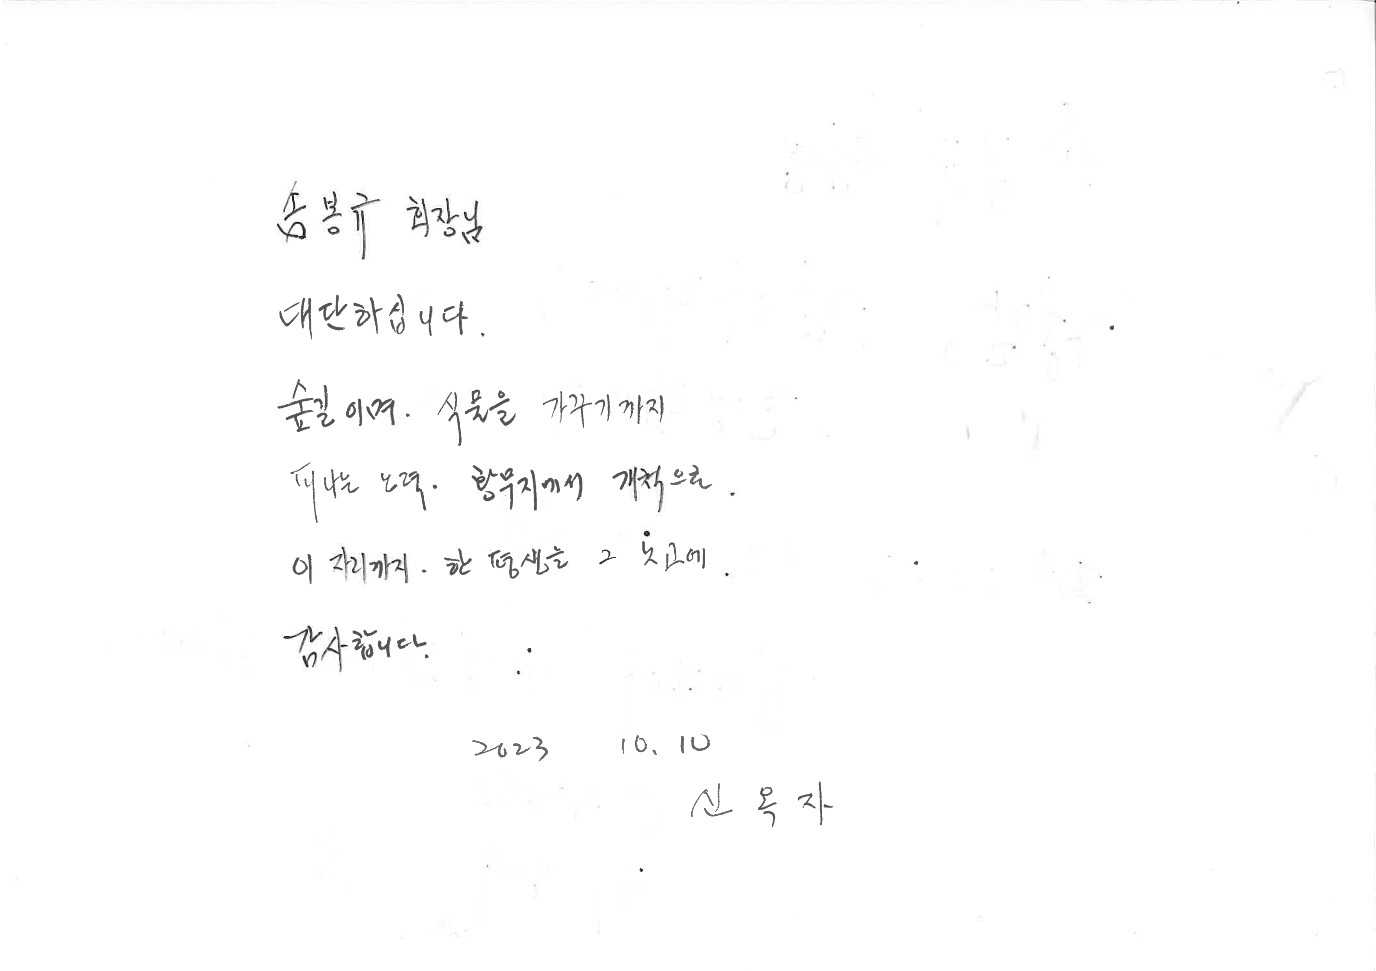 송봉규 회장님
대단하십니다.
숲길이며. 식물을 가꾸기까지
피나는 노력. 황무지에서 개척으로.
이 자리까지. 한 평생을 그
감사합니다.
2023 10. 10
신옥자